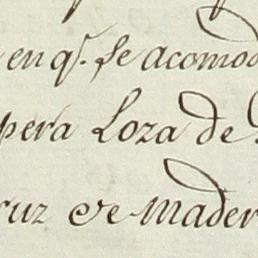 en q.^e se acomod
pera Loza de
ruz de mader